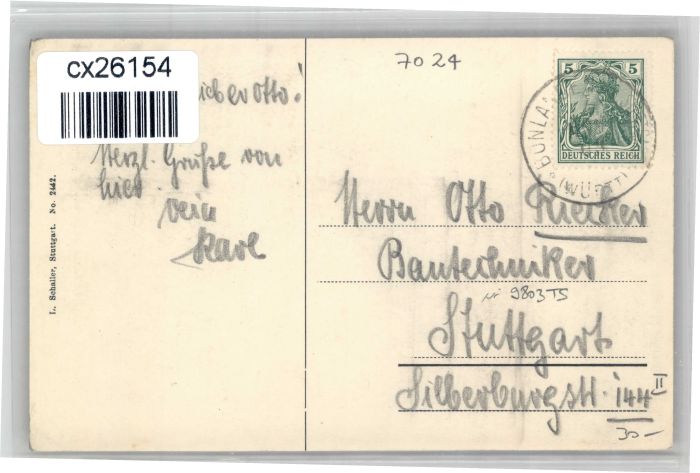 cx26154
lieber Otto!
Herzl. Grüße von
hier.
Dein
Karl
L. Schaller, Stuttgart. No. 2442.
7024
5 5
DEUTSCHES REICH
BÜNLA
(WÜRTT)
Herrn Otto
Bautechniker
9803TS
Stuttgart
Silberburgstr. 144 II
30-